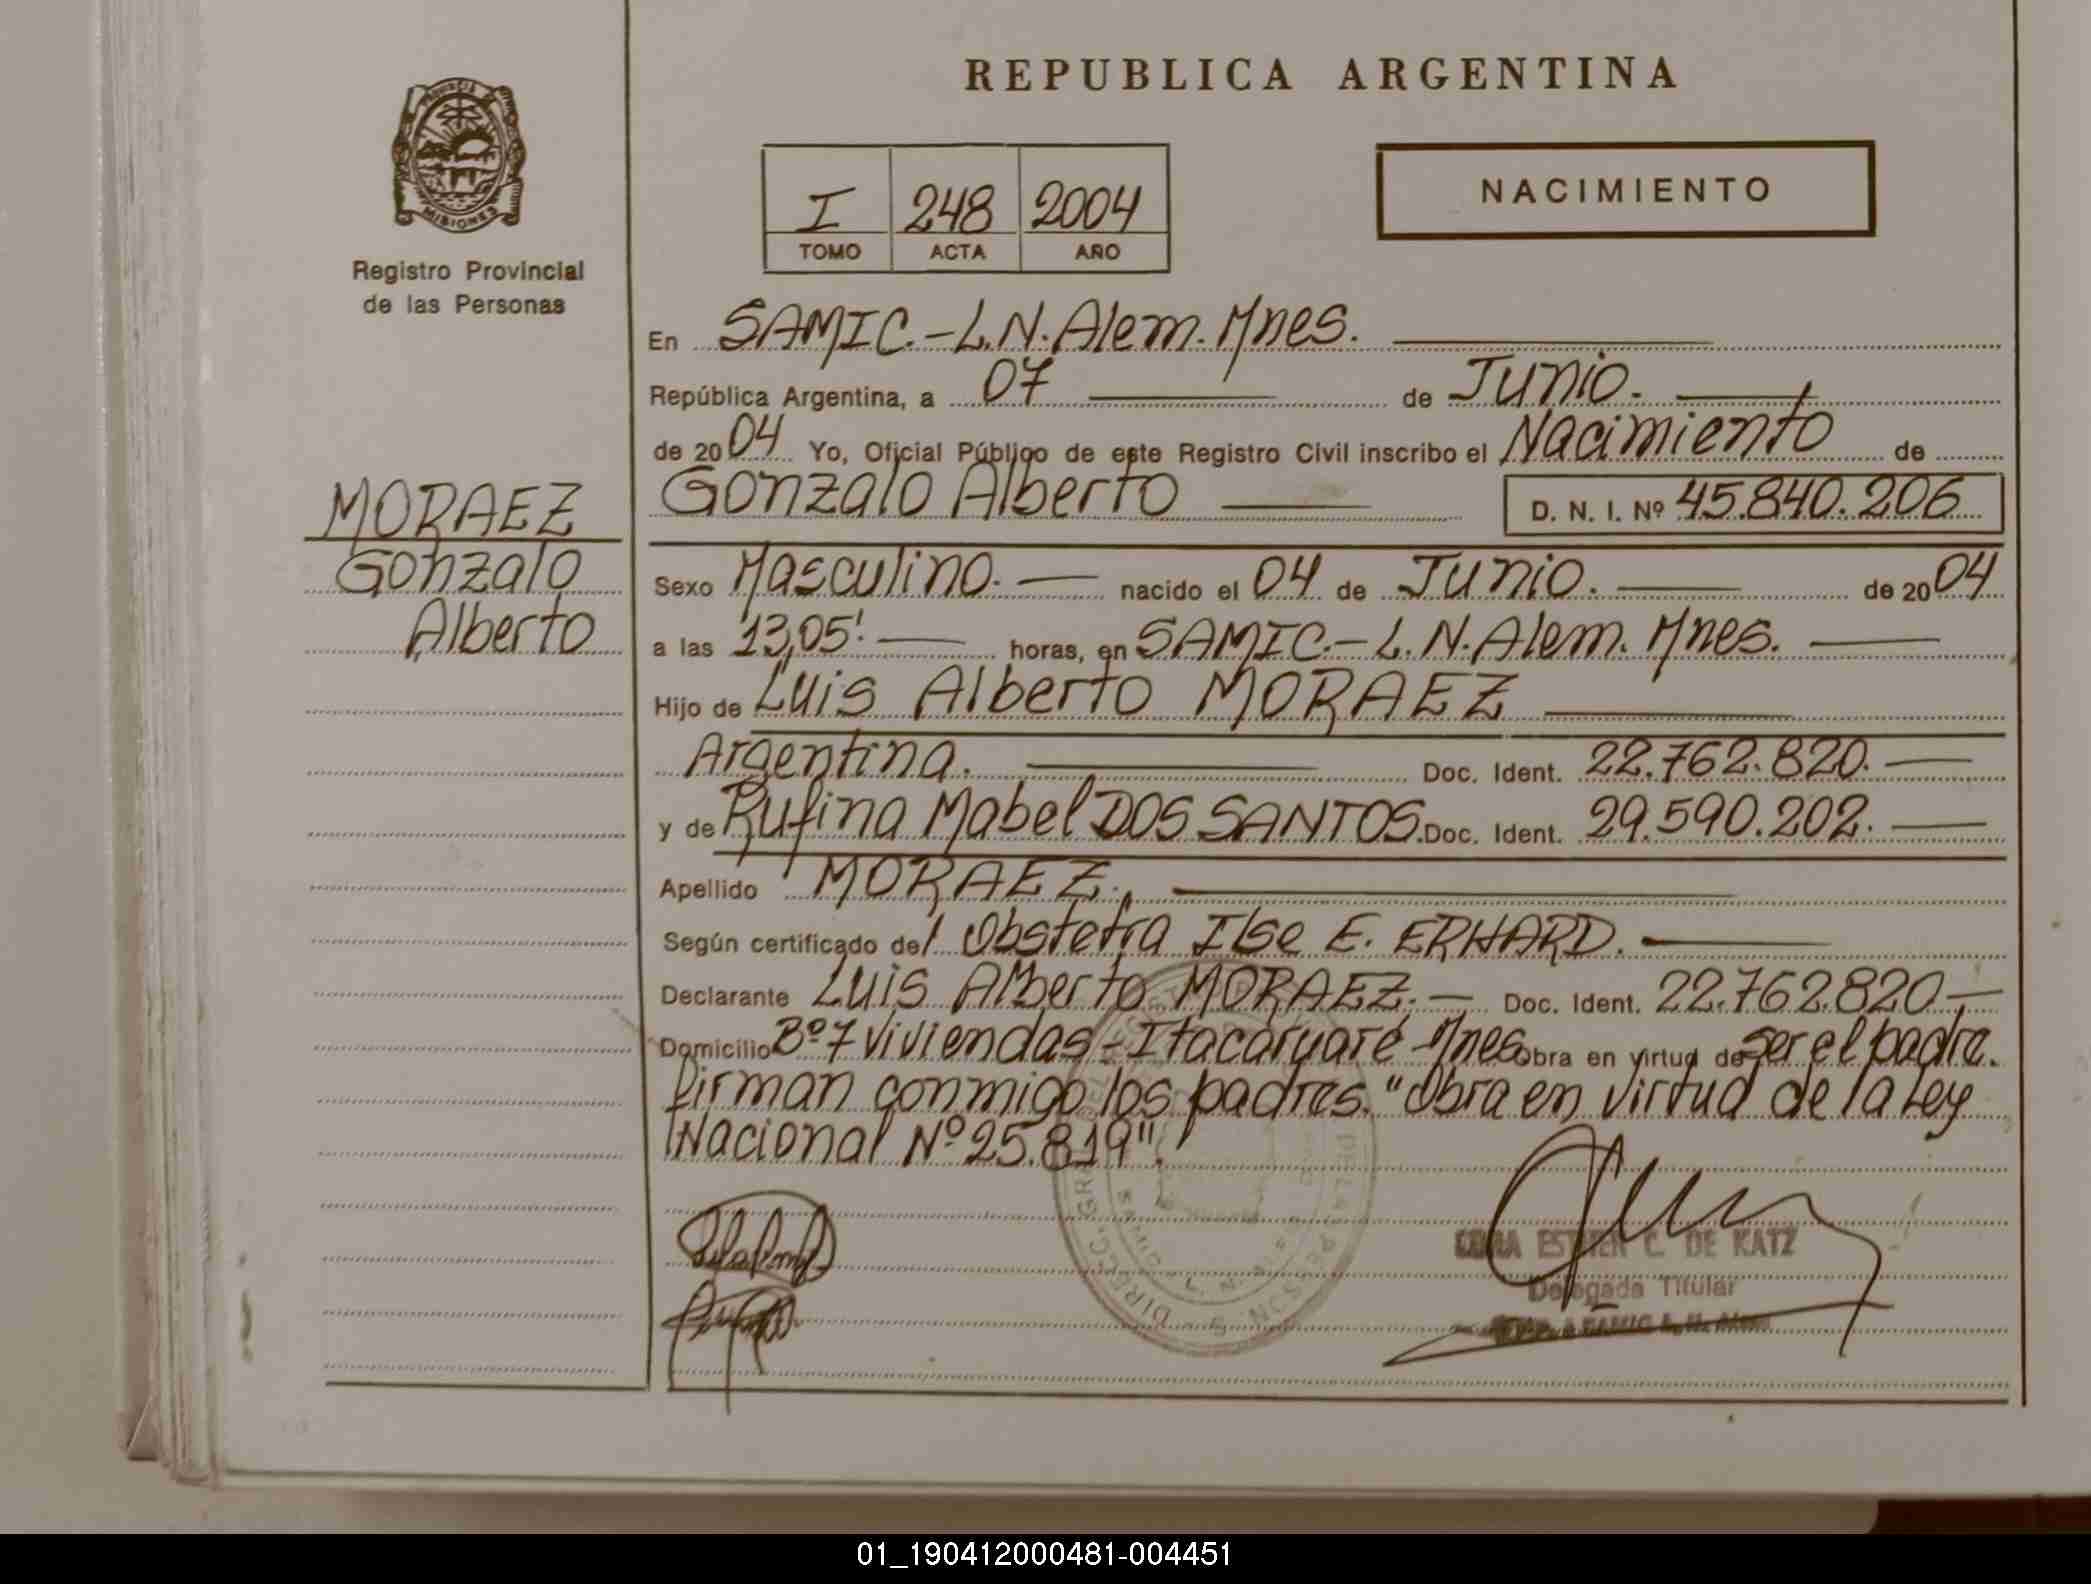 REPUBLICA ARGENTINA
PROVINCIA DE
MISIONES
Registro Provincial
de las Personas
I 248 2004
TOMO ACTA AÑO
NACIMIENTO
En SAMIC.-L.N.Alem.Mnes.
República Argentina, a 07 de Junio.
de 2004 Yo, Oficial Público de este Registro Civil inscribo el Nacimiento de
Gonzalo Alberto D. N. I. Nº 45.840.206
MORAEZ
Gonzalo
Alberto
Sexo Masculino. nacido el 04 de Junio. de 2004
a las 13,05' horas, en SAMIC.-L.N.Alem.Mnes.
Hijo de Luis Alberto MORAEZ
Argentina. Doc. Ident. 22.762.820.
y de Rufina Mabel DOS SANTOS. Doc. Ident. 29.590.202.
Apellido MORAEZ.
Según certificado del Obstetra Ilse E. ERHARD.
Declarante Luis Alberto MORAEZ.- Doc. Ident. 22.762.820.-
Domicilio Bº 7 viviendas-Itacaruaré-Mnes Obra en virtud de ser el padre.
firman conmigo los padres. "Obra en virtud de la Ley
Nacional Nº 25.819".
ESTHER C. DE KATZ
Delegada Titular
SAMIC L. N. Alem
01_190412000481-004451